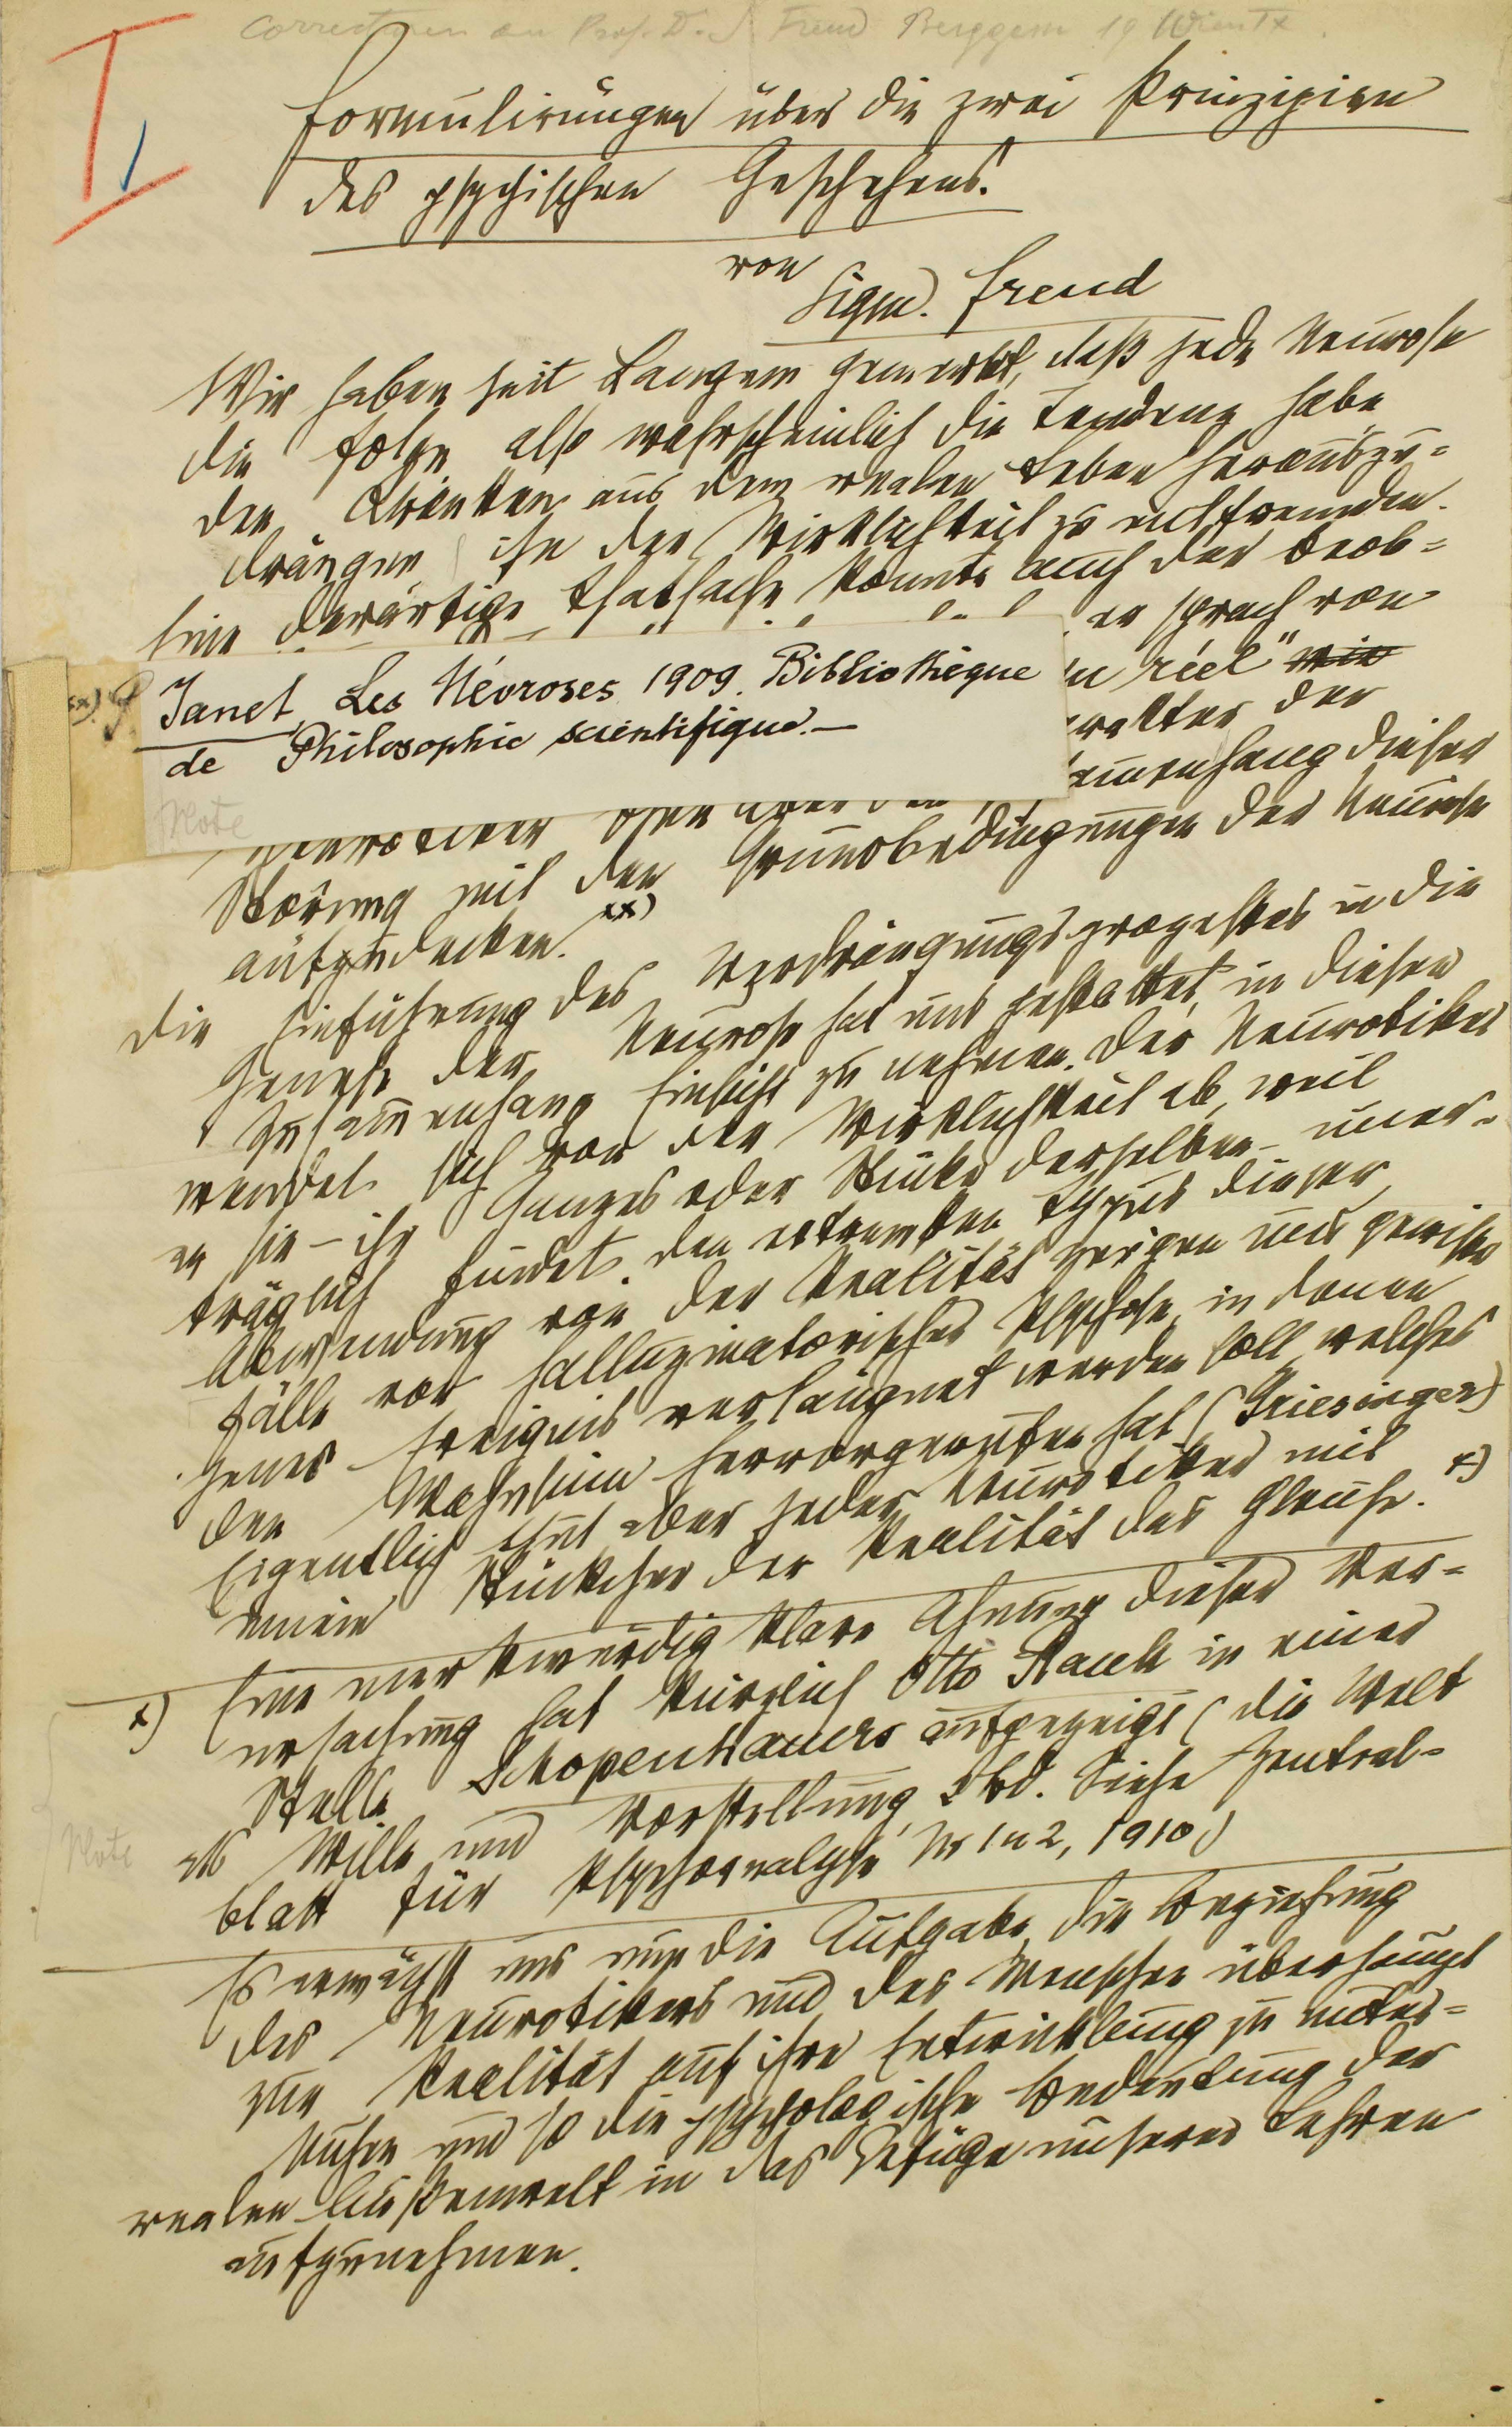 Correcturen an Prof. Dr. S. Freud Berggasse 19 Wien IX.
I
1
Formulirungen über die zwei Prinzipien
des psychischen Geschehens.
von
Sigm. Freud
Wir haben seit Langem gemerkt, daß jede Neurose
die Folge also wahrscheinlich die Tendenz habe
den Kranken aus dem realen Leben herauszu=
drängen, ihn der Wirklichkeit zu entfremden.
Eine derartige Thatsache konnte auch der Beob=
er sprach von
réel" wie
Charakter der
Janet, Les Névroses 1909. Bibliothèque
de Philosophie scientifique.—
xx)
Note
Neurotiker ohne aber den Zusammenhang dieser
Störung mit den Grundbedingungen der Neurose
aufzudecken. xx)
Die Einführung des Verdrängungsprozesses in die
Genese der Neurose hat uns gestattet, in diesen
Zusammenhang Einsicht zu nehmen. Der Neurotiker
wendet sich von der Wirklichkeit ab, weil
er sie – ihr Ganzes oder Stücke derselben – uner=
träglich findet. Den extremsten Typus dieser
Abwendung von der Realität zeigen uns gewisse
Fälle von halluzinatorischer Psychose, in denen
jenes Ereignis verläugnet werden soll, welches
den Wahnsinn hervorgerufen hat (Griesinger)
Eigentlich thut aber jeder Neurotiker mit
einem Stückchen der Realität das Gleiche. x)
x) Eine merkwürdig klare Ahnung dieser Ver=
ursachung hat kürzlich Otto Rank in einer
Stelle Schopenhauers aufgezeigt (Die Welt
als Wille und Vorstellung, 2 Bd. Siehe Zentral=
blatt für Psychoanalyse, Nr 1 u 2, 1910)
Note
Es erwächst uns nun die Aufgabe, die Beziehung
des Neurotikers und des Menschen überhaupt
zur Realität auf ihre Entwicklung zu unter=
suchen und so die psychologische Bedeutung der
realen Außenwelt in das Gefüge unserer Lehren
aufzunehmen.